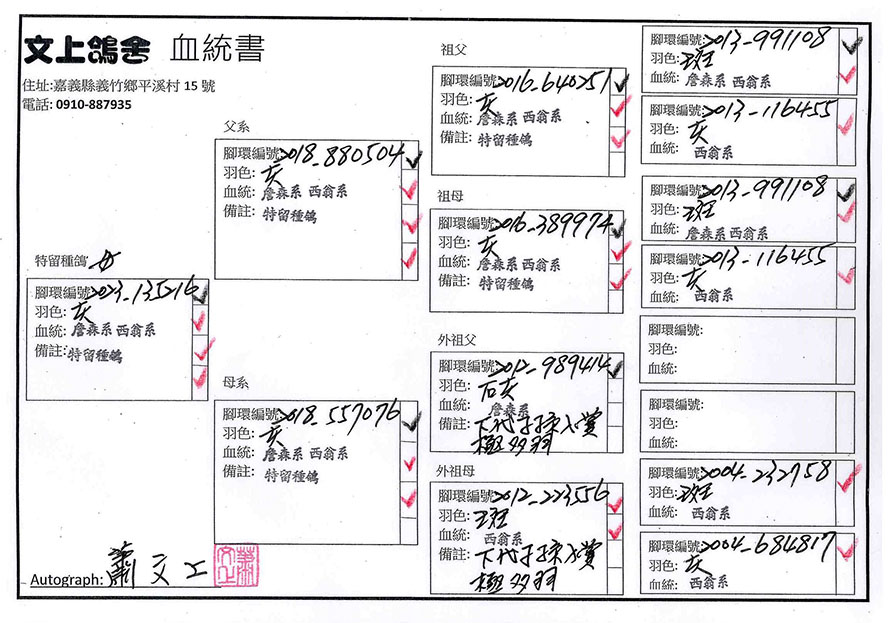 文上鴿舍 血統書
住址:嘉義縣義竹鄉平溪村 15 號
電話: 0910-887935
特留種鴿
腳環編號: 2023-135216
羽色: 灰
血統: 詹森系 西翁系
備註: 特留種鴿
父系
腳環編號: 2018-880504
羽色: 灰
血統: 詹森系 西翁系
備註: 特留種鴿
母系
腳環編號: 2018-557076
羽色: 灰
血統: 詹森系 西翁系
備註: 特留種鴿
祖父
腳環編號: 2016-640251
羽色: 灰
血統: 詹森系 西翁系
備註: 特留種鴿
祖母
腳環編號: 2016-389974
羽色: 灰
血統: 詹森系 西翁系
備註: 特留種鴿
外祖父
腳環編號: 2012-989414
羽色: 石灰
血統: 詹森系
備註: 下代子孫入賞
極多羽
外祖母
腳環編號: 2012-223556
羽色: 斑
血統: 西翁系
備註: 下代子孫入賞
極多羽
腳環編號: 2013-991108
羽色: 斑
血統: 詹森系 西翁系
腳環編號: 2013-116455
羽色: 灰
血統: 西翁系
腳環編號: 2013-991108
羽色: 斑
血統: 詹森系 西翁系
腳環編號: 2013-116455
羽色: 灰
血統: 西翁系
腳環編號:
羽色:
血統:
腳環編號:
羽色:
血統:
腳環編號: 2004-232758
羽色: 斑
血統: 西翁系
腳環編號: 2004-684817
羽色: 灰
血統: 西翁系
Autograph: 蕭文上
蕭文上